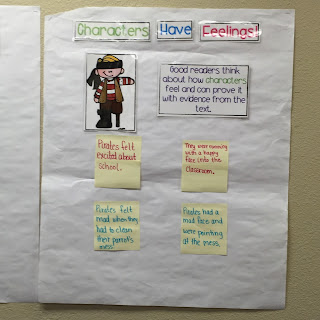 Characters Have Feelings!
Good readers think
about how characters
feel and can prove it
with evidence from the
text.
Pirates felt
excited about
school.
They were running
with a happy
face into the
classroom.
Pirates felt
mad when they
had to clean
their parrot's
mess.
Pirates had a
mad face and
were pointing
at the mess.